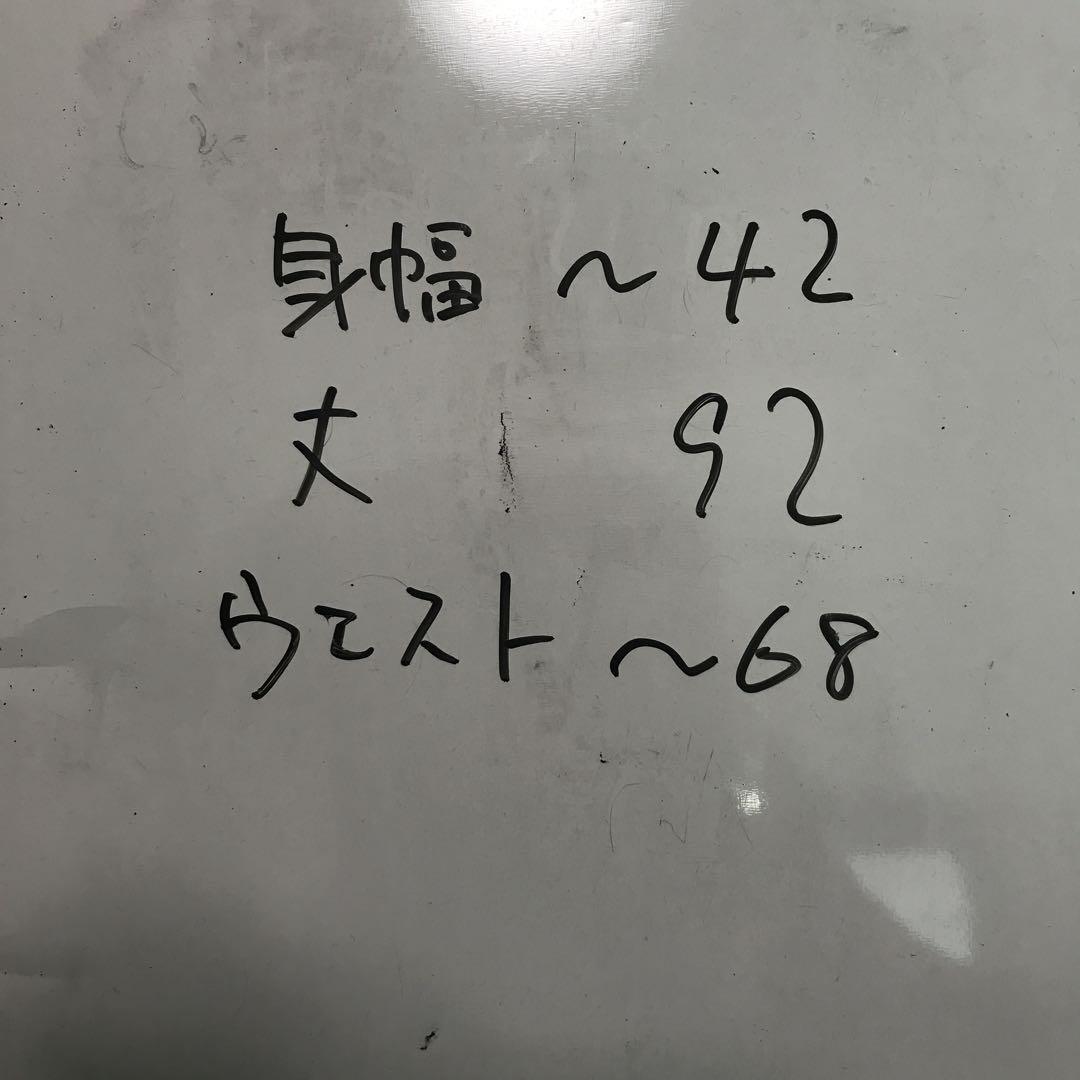 身幅 ~42
丈 92
ウエスト ~68